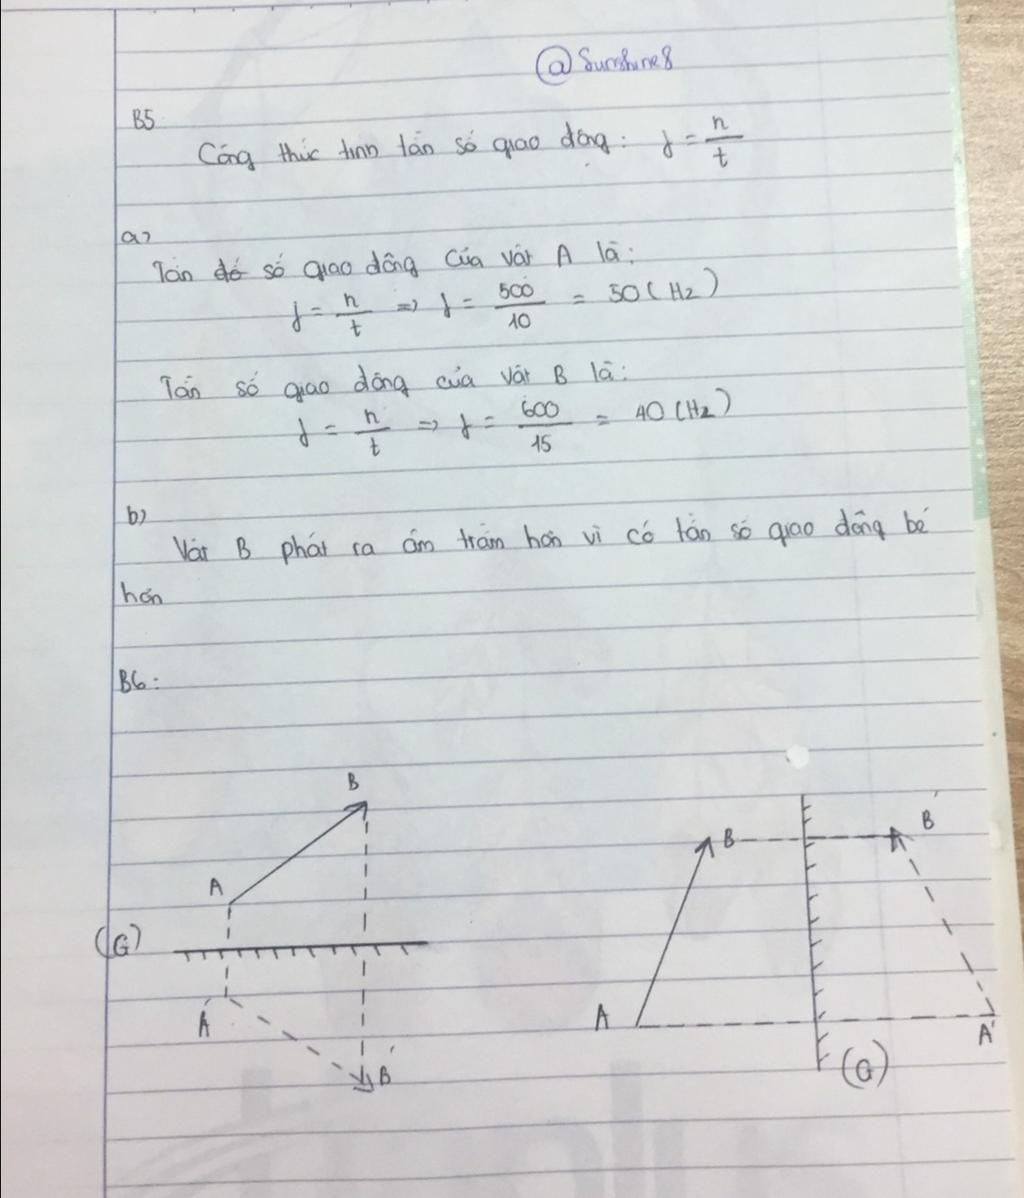 @Sunshine8
B5
Công thức tính tần số giao động: f = n/t
a)
Tần số giao động của vật A là:
f = n/t => f = 500/10 = 50 (Hz)
Tần số giao động của vật B là:
f = n/t => f = 600/15 = 40 (Hz)
b)
Vật B phát ra âm trầm hơn vì có tần số giao động bé
hơn
B6:
B
A
(G)
A'
B'
B
B'
A
A'
(G)